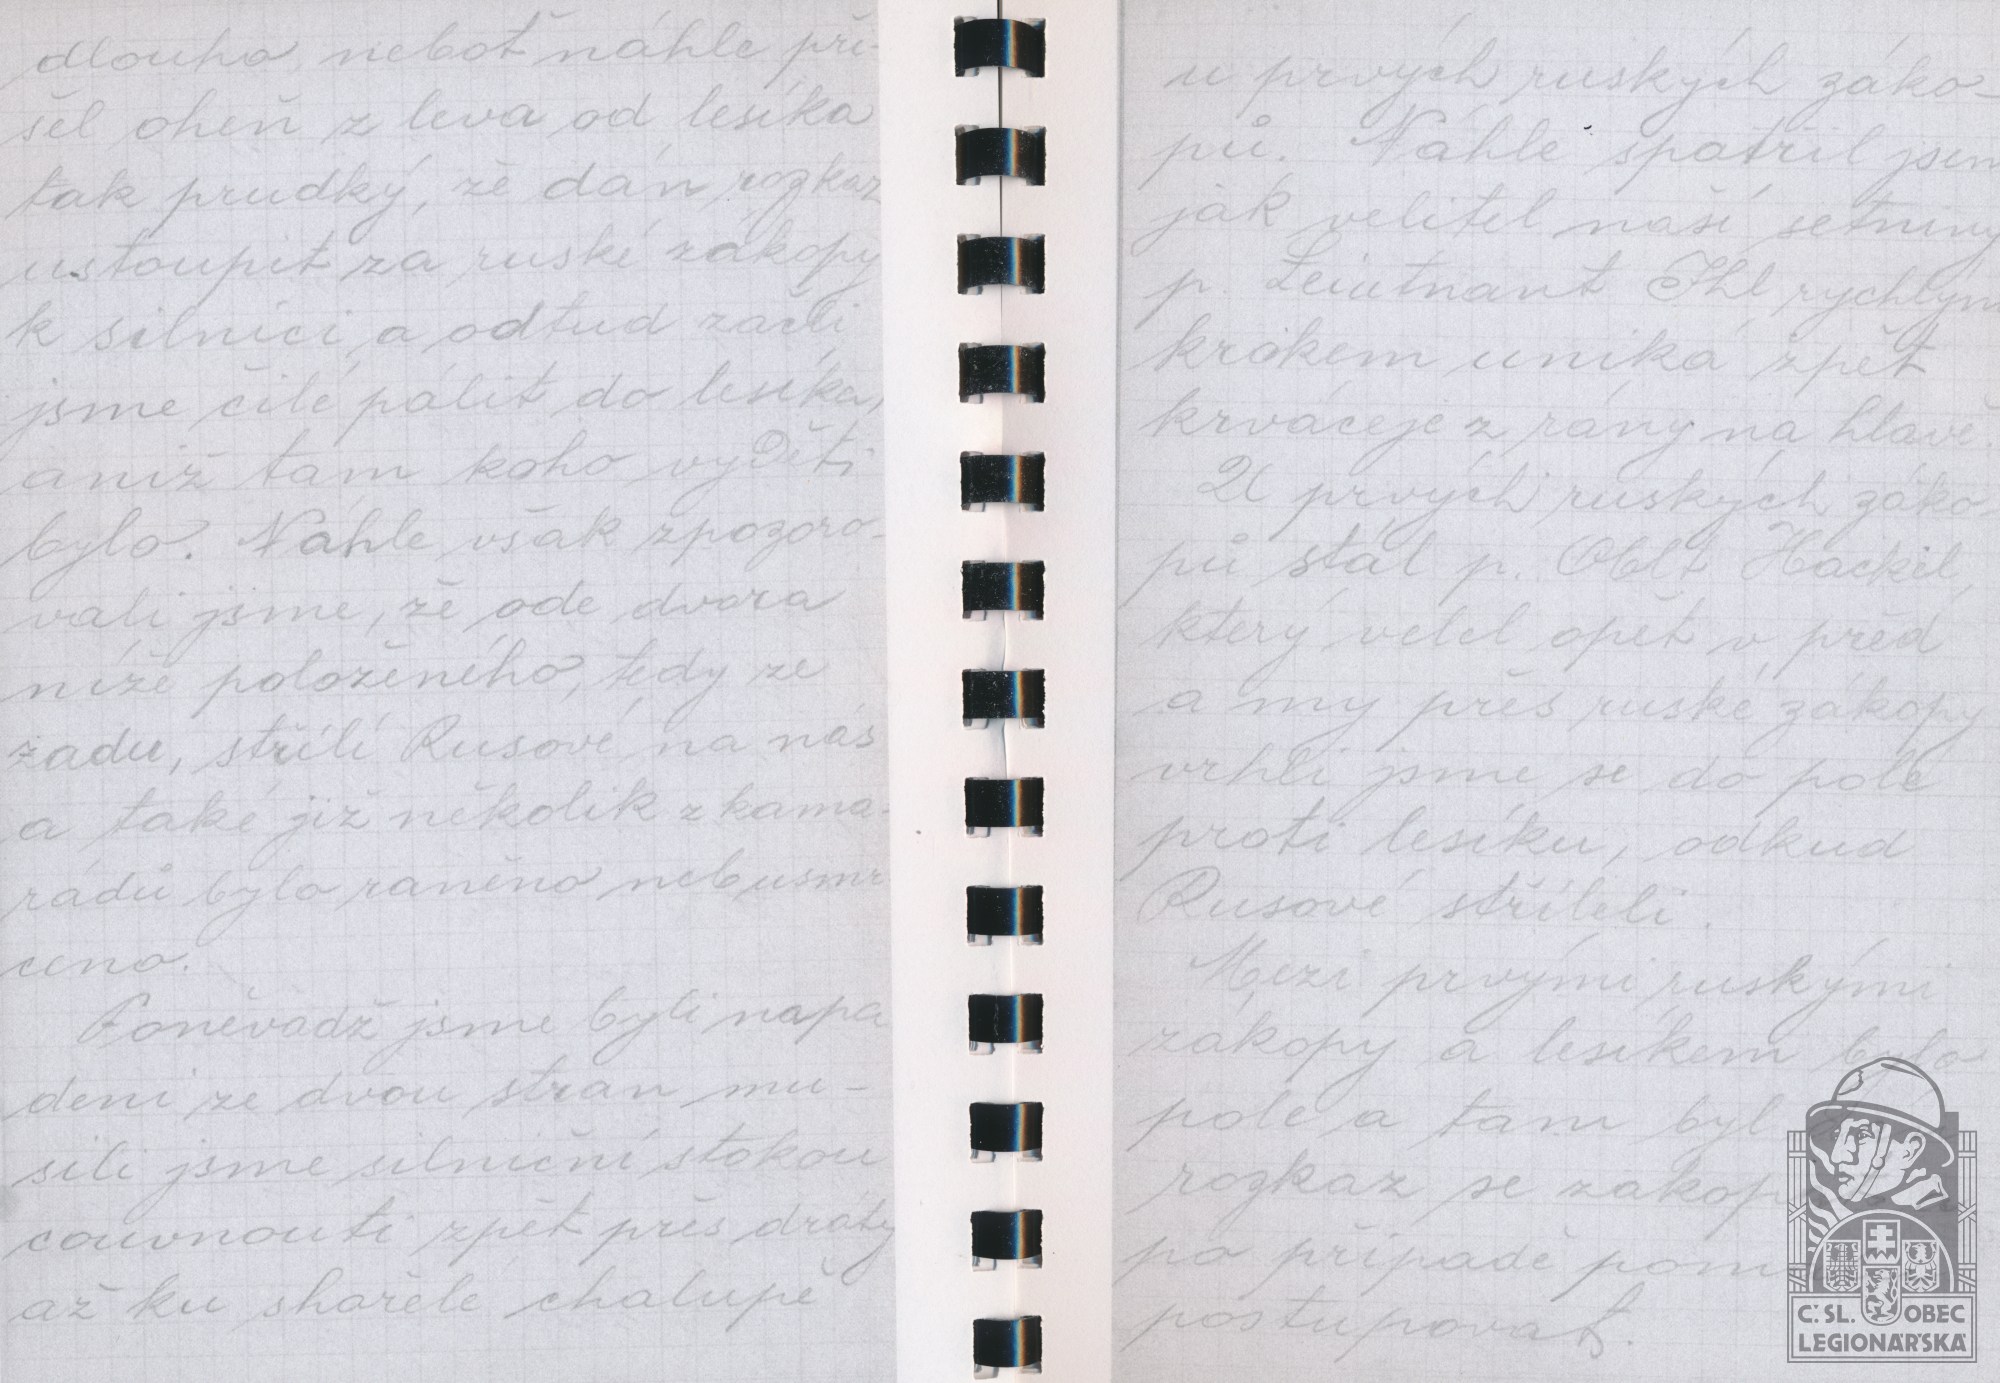 dlouho, neboť náhle při-
šel oheň z leva od lesíka
tak prudký, že dán rozkaz
ustoupit za ruské zákopy
k silnici a odtud začli
jsme čilé pálit do lesíka,
aniž tam koho vyděti
bylo. Náhle však zpozoro-
vali jsme, že ode dvora
níže položeného, tedy ze
zadu, střílí Rusové na nás
a také již několik z kama-
rádů bylo raněno neb usmr
ceno.
Poněvadž jsme byli napa
deni ze dvou stran mu-
sili jsme silniční stokou
couvnouti zpět přes dráty
až ku shořelé chalupě
u prvých ruských záko-
pů. Náhle spatřil jsem
jak velitel naší setniny
p. Leiutnant Ihl rychlým
krokem uniká zpět
krváceje z rány na hlavě.
U prvých ruských záko-
pů stál p. Oblt Hackel,
který velel opět v před
a my přes ruské zákopy
vrhli jsme se do pole
proti lesíku, odkud
Rusové stříleli.
Mezi prvými ruskými
zákopy a lesíkem bylo
pole a tam byl
rozkaz se zakop
po případě pom
postupovat.
Č.SL. OBEC
LEGIONÁŘSKÁ